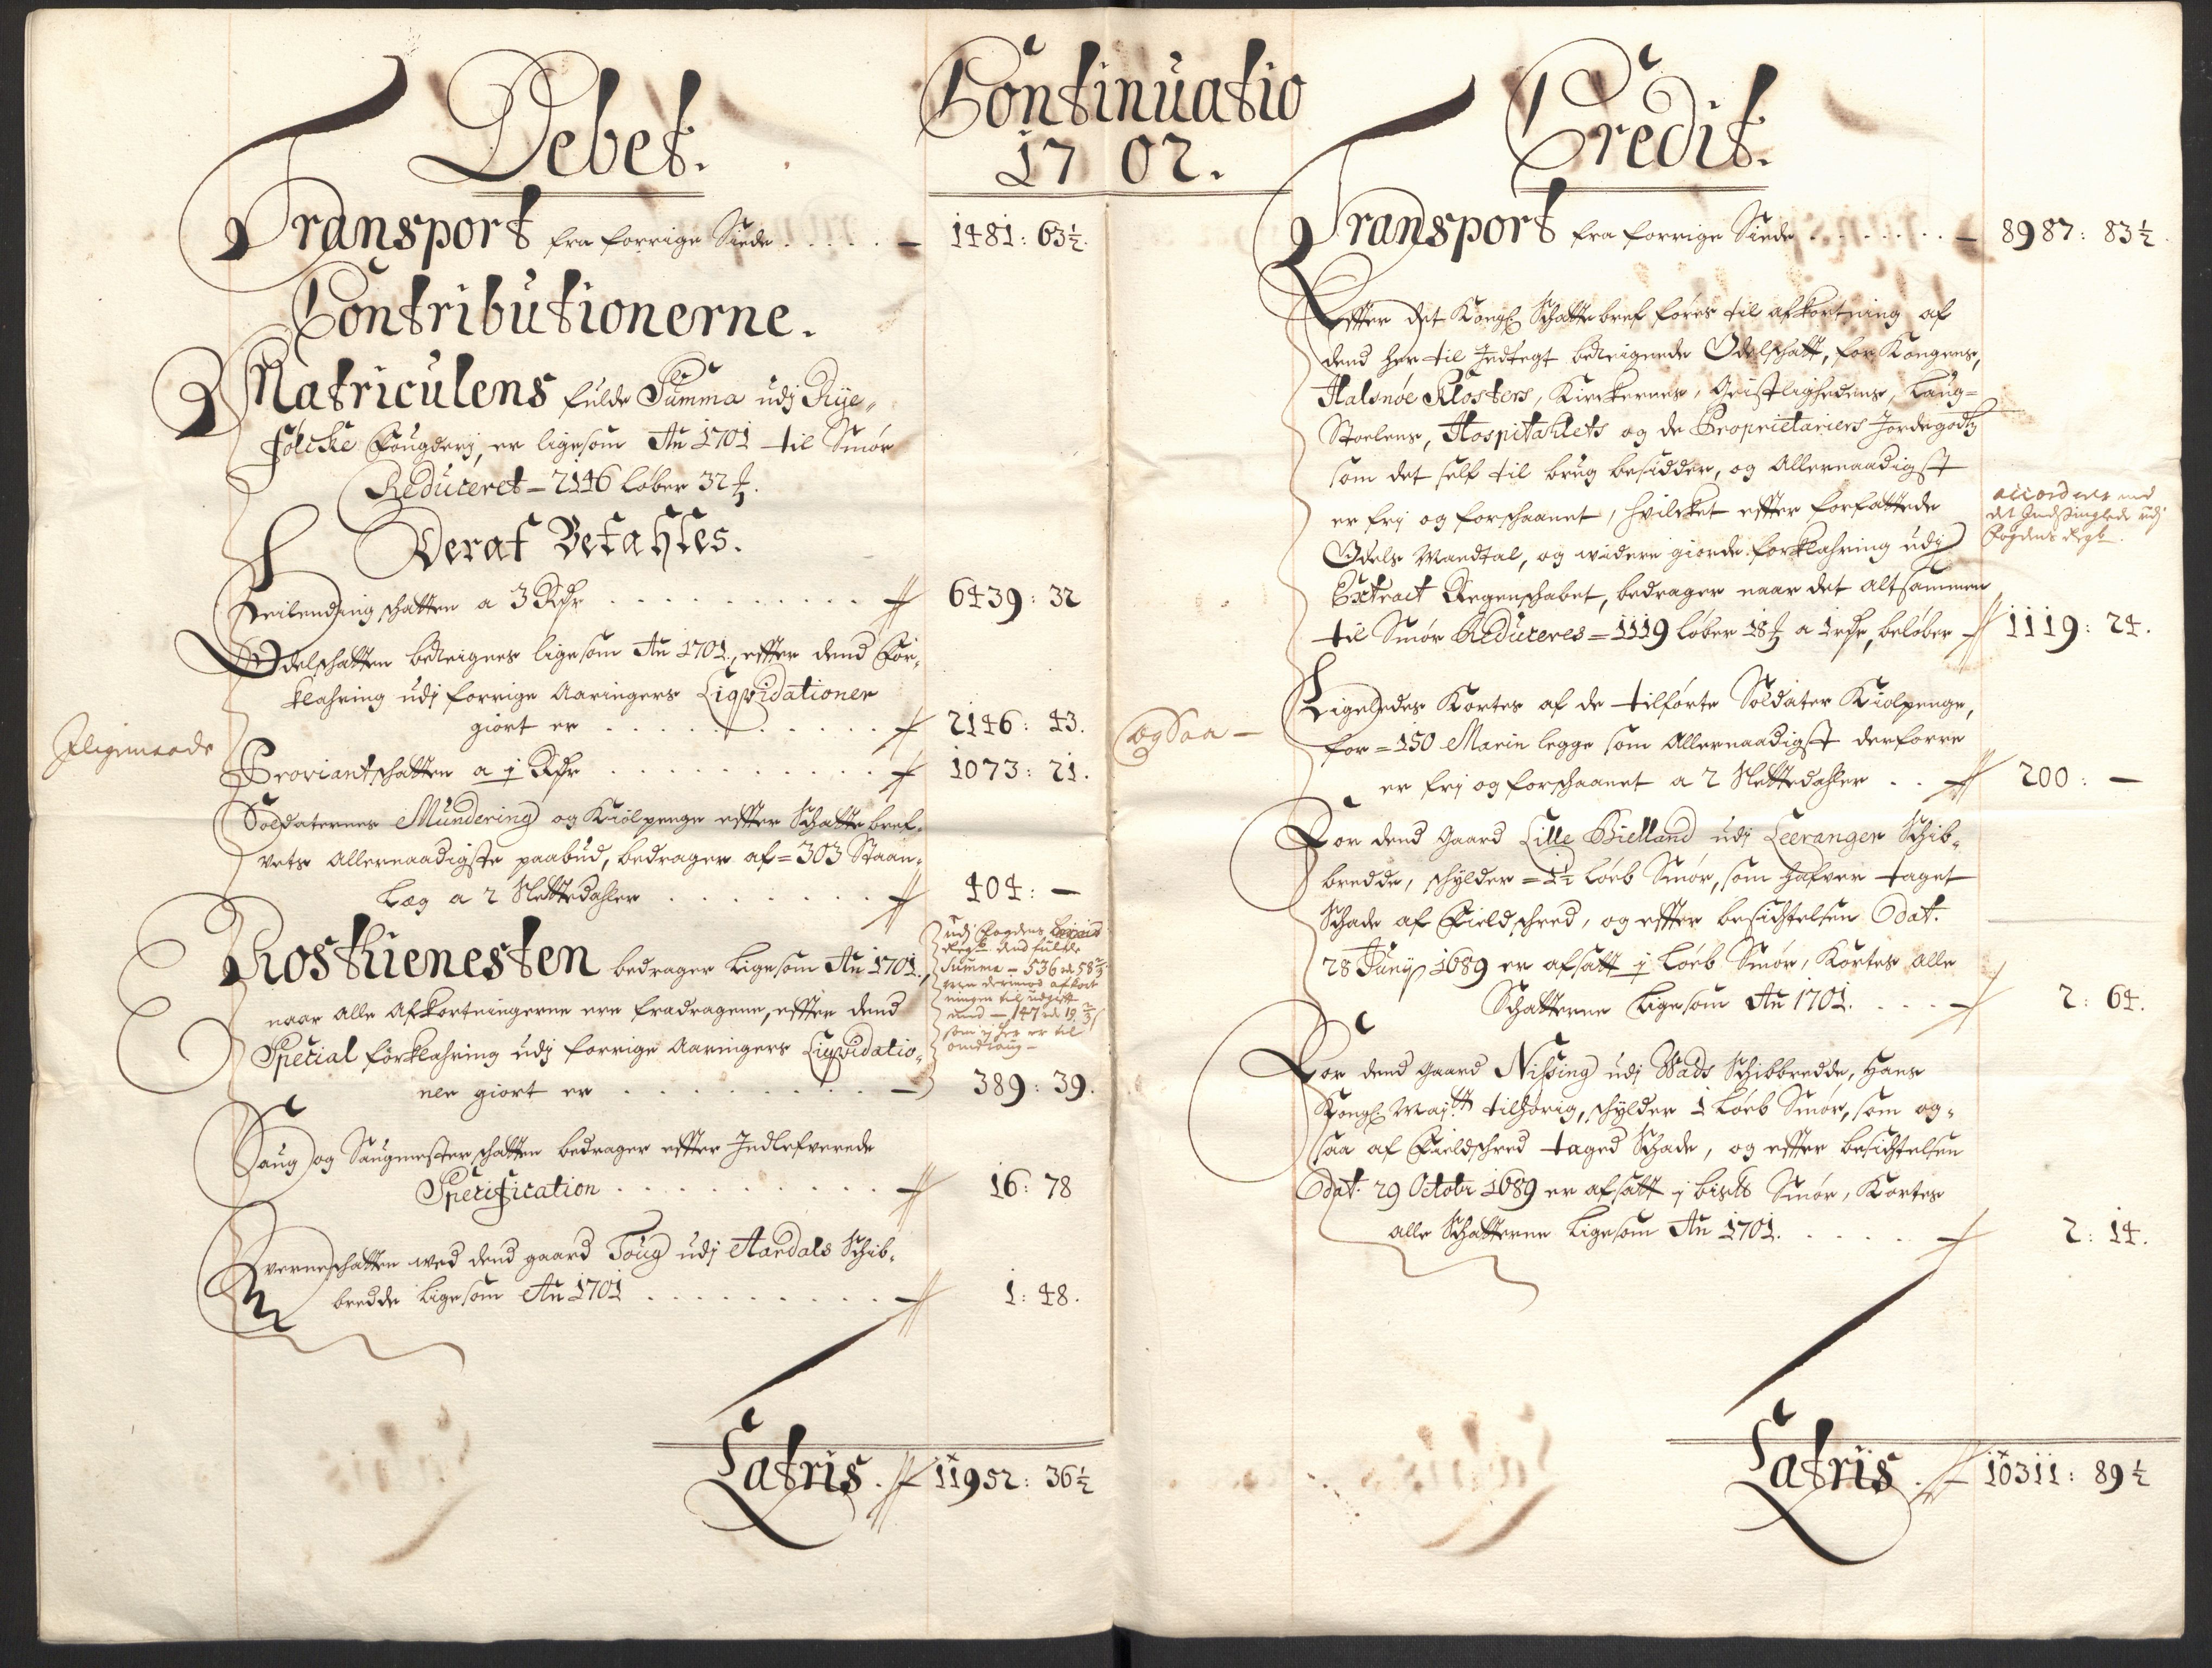 Continuatio
1702.
Debet.
Transport fra forrige Siede . . . . . — 1481: 63½.
Contributionerne.
Matriculens fulde Summa udj Rye-
fölcke Fougderj, er ligesom Ao 1701 til Smör
Reduceret – 2146 løber 32 ℔.
Deraf Betahles.
Leilending schatten a 3 Rdr . . . . . 6439: 32
Odelschatten beteignes ligesom Ao 1701, effter dend For-
klahring udj forrige Aaringers Liqvidationer
giort er . . . . . 2146: 43.
Proviantschatten a ½ Rdr . . . . . 1073: 21.
Soldaternes Mundering og Kiolpenge effter Schattebref-
vets Allernaadigste paabud, bedrager af = 303 Staan-
Læg a 2 Slettedahler . . . . . 404: —
Rostienesten bedrager ligesom Ao 1701,
naar alle Afkortningerne ere fradragene, effter dend
Special forklahring udj forrige Aaringers Liqvidatio-
ner giort er . . . . . — 389: 39.
udj Fogdens
Regsk. And fulde
Summa – 536 rd 58⅔
som er til
Saug og Saugmesterschatten bedrager effter Indlefverede
Specification . . . . . 16: 78
Qverneschatten wed dend gaard Toug udj Aardals Schib-
bredde Ligesom Ao 1701 . . . . . 1: 48.
Latris. 11952: 36½
Credit.
Transport fra forrige Siede . . . . . — 8987: 83½.
Effter det Kongl Schattebref föres til afkortning af
dend her til Indtegt beteignede Odelschatt, for Kongens,
Halsnöe Klosters, Kirckernes, Geistlighedens, Laug-
Stoelens, Hospitahlets og de Proprietariers Jordegodtz
som det self til brug besidder, og Allernaadigst
er frj og forschaanet, hvilcket effter forfattede
Odels Mandtal, og widere giorde forklahring udj
Extract Regenschabet, bedrager naar det altsammen
til Smör Reduceres = 1119 løber 18 ℔ a 1 rdr, beløber 1119: 24.
accorderer med
det udj
Fogdens Regsk.
Ligeledes Kortes af de tilförte Soldater Kiolpenge,
for = 150 Marin legge som Allernaadigst derforre
er frj og forschaanet a 2 Slettedahler . . 200: —
ogsaa —
For dend Gaard Lille Bielland udj Leeranger Schib-
bredde, schylder = 1½ Löeb Smör, som hafver taget
Schade af Fieldschred, og effter besichtelsen Dat.
28 Junij 1689 er afsatt ½ Löeb Smör, Kortes alle
Schatterne Ligesom Ao 1701. . . . — 2: 64.
For dend Gaard Nissing udj Wads Schibbredde, Hans
Kongl Maytt tilhörig, schylder 1 Löeb Smör, som og-
saa af Fieldschred taged Schade, og effter besichtelsen
Dat. 29 October 1689 er afsatt ½ Smör, Kortes
alle Schatterne Ligesom Ao 1701. . . . . 2: 14.
Latris. 10311: 89½